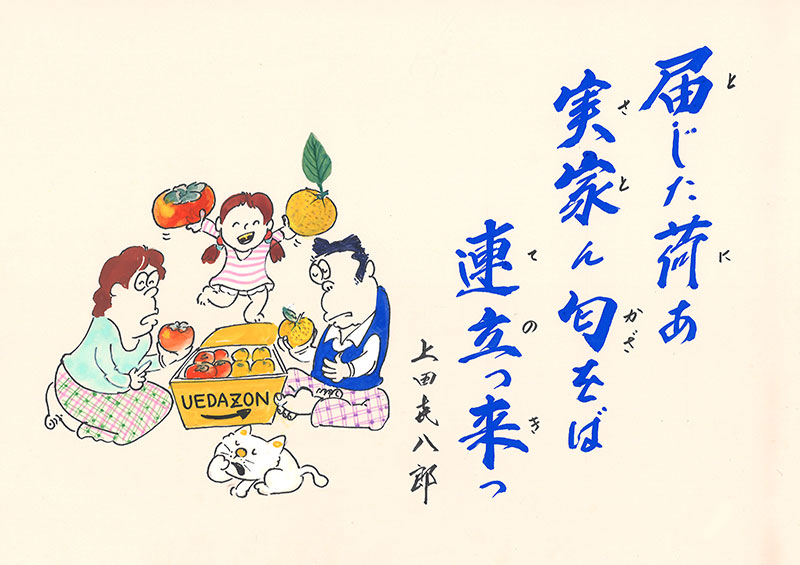 届じた荷あ
実家ん匂をば
連立っ来っ
と
に
さと
かざ
てのき
上田㐂八郎
UEDAZON